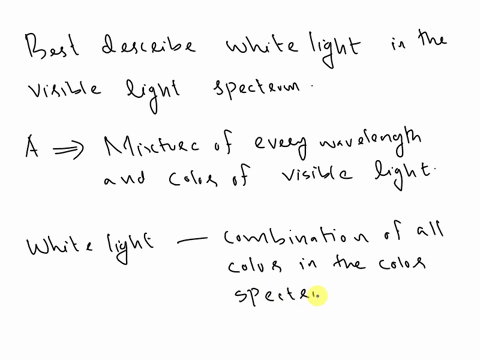 Best describe white light in the
visible light specterm.
A ⇒ Mixture of every wavelength
and color of visible light.
White light — combination of all
color in the color
specte